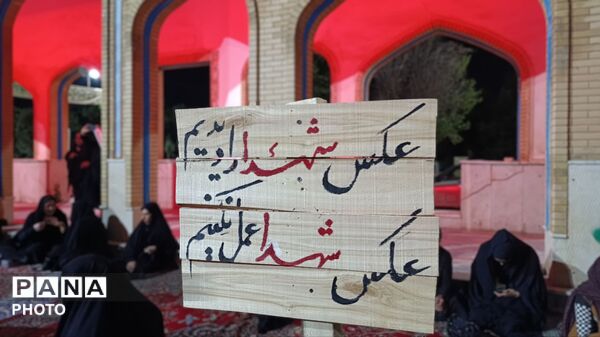 عکس شهدا را دیدیم
عکس شهدا عمل نکنیم
PANA
PHOTO